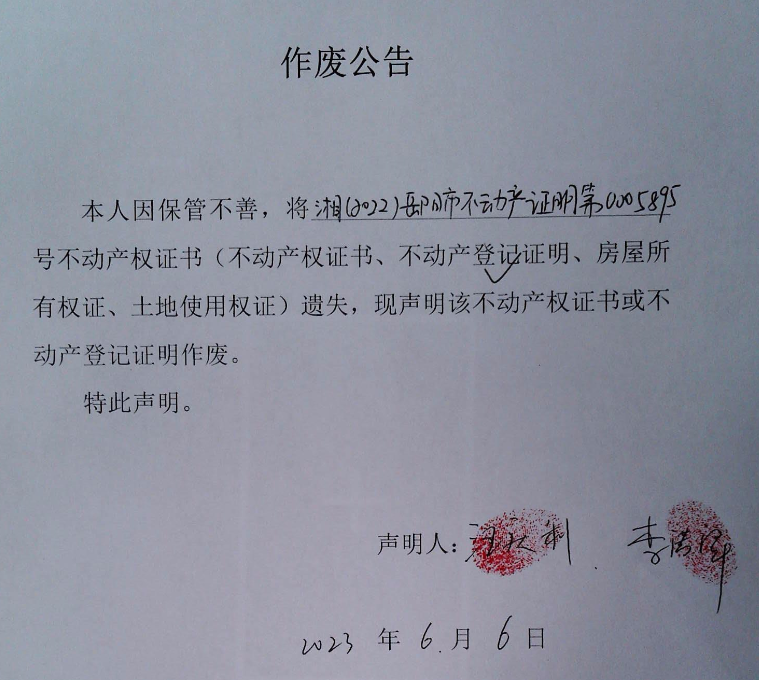 作废公告
本人因保管不善，将湘(2022)岳阳市不动产证明第0005895
号不动产权证书（不动产权证书、不动产登记证明、房屋所
有权证、土地使用权证）遗失，现声明该不动产权证书或不
动产登记证明作废。
特此声明。
声明人：
2023 年 6 月 6 日